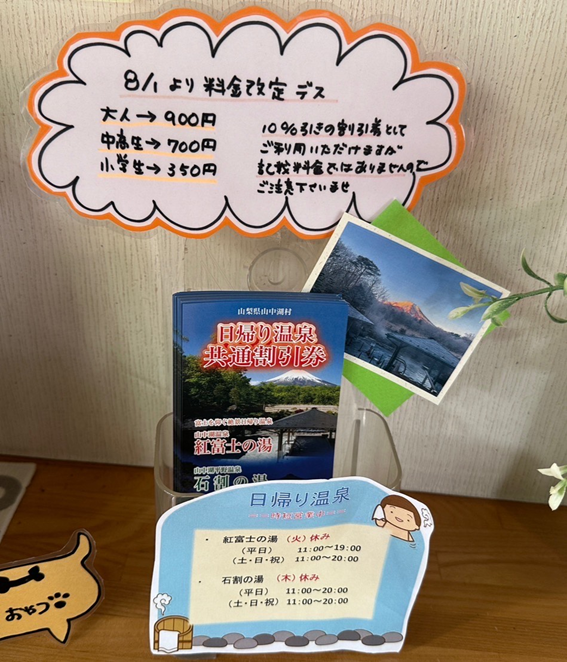 8/1より料金改定デス
大人→900円
中高生→700円
小学生→350円
10%引きの割引券として
ご利用いただけますが
記載料金ではありませんので
ご注意下さいませ
山梨県山中湖村
日帰り温泉
共通割引券
富士を仰ぐ絶景日帰り温泉
山中湖温泉
紅富士の湯
山中湖平野温泉
石割の湯
日帰り温泉
紅富士の湯 (火)休み
(平日) 11:00~19:00
(土・日・祝) 11:00~20:00
石割の湯 (木)休み
(平日) 11:00~20:00
(土・日・祝) 11:00~20:00
おやつ